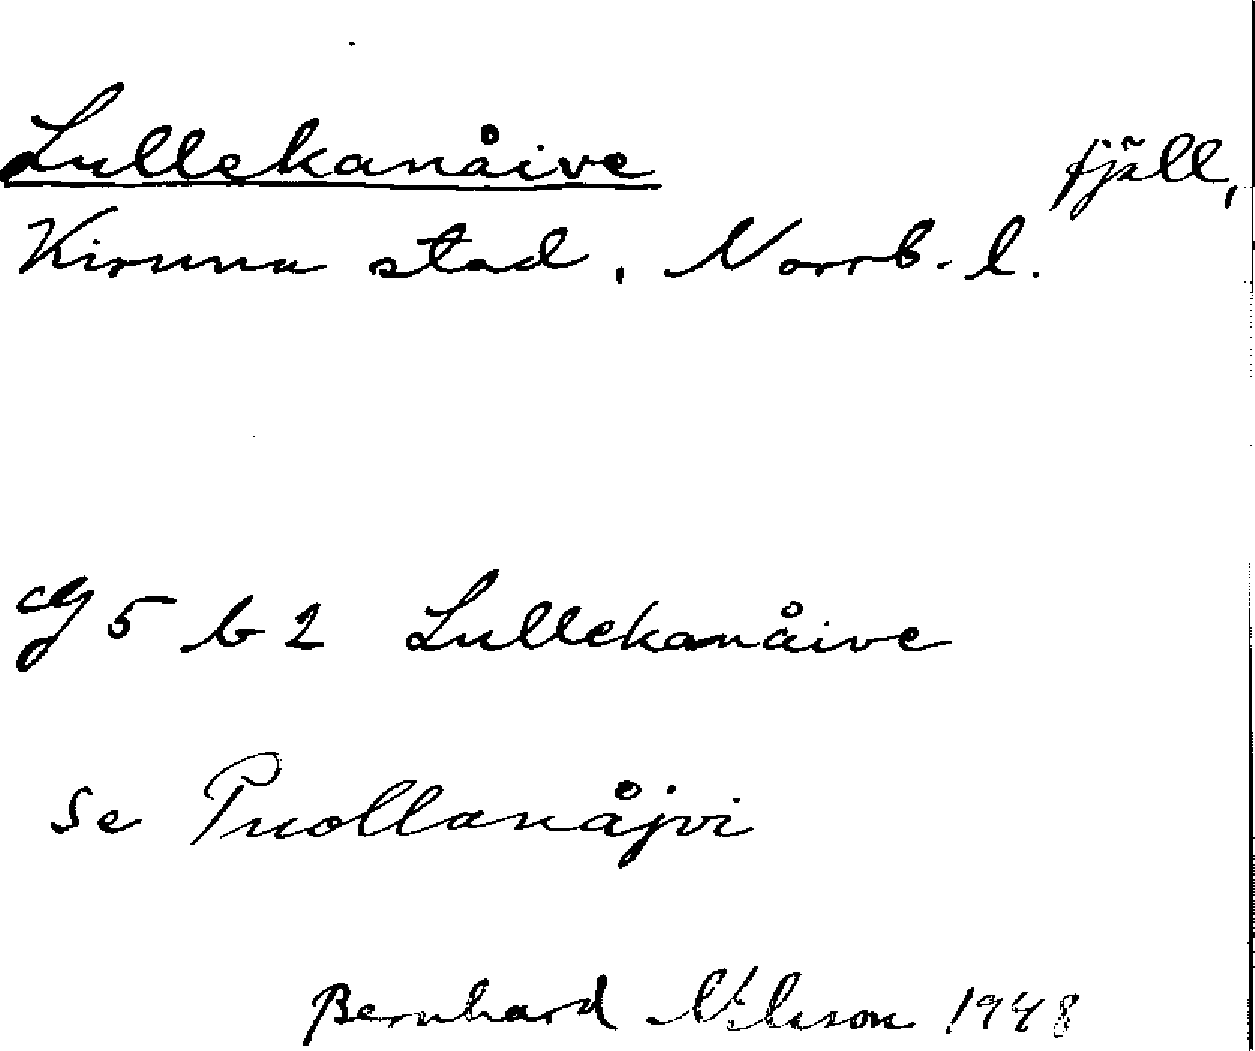 Lullekanåive fjäll,
Kiruna stad, Norrb. l.
5 b 2 Lullekanåive
se Puollanåjvi
Bernhard Nilsson 1948